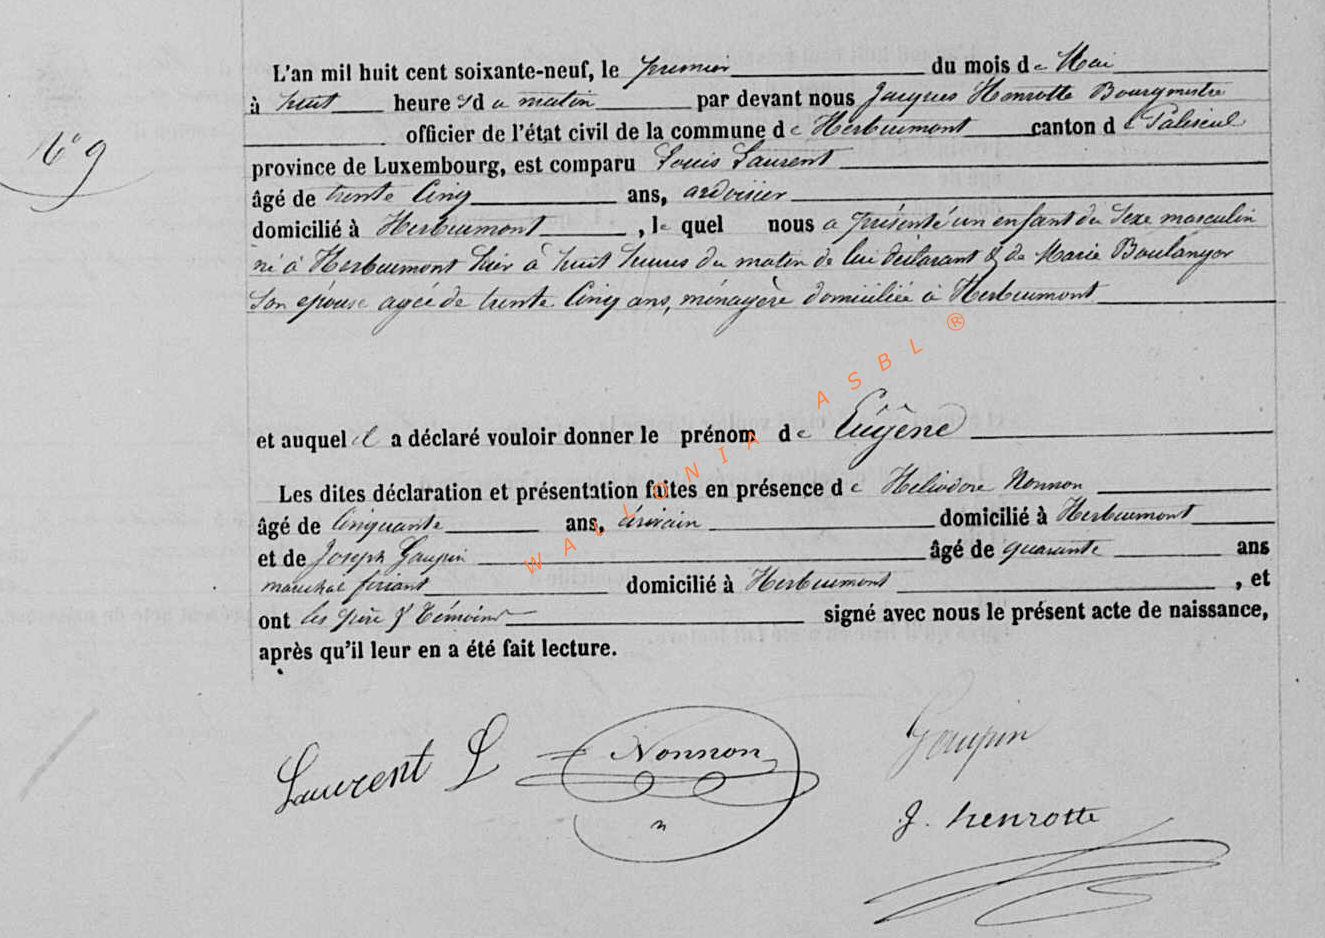 N° 9
L'an mil huit cent soixante-neuf, le premier du mois de Mai
à huit heures du matin par devant nous Jacques Henrotte Bourgmestre
officier de l'état civil de la commune de Herbeumont canton de Paliseul
province de Luxembourg, est comparu Louis Laurent
âgé de trente Cinq ans, ardoisier
domicilié à Herbeumont, le quel nous a présenté un enfant du Sexe masculin
né à Herbeumont hier à huit heures du matin de lui déclarant & de Marie Boulanger
Son épouse agée de trente Cinq ans, ménagère domiciliée à Herbeumont
et auquel il a déclaré vouloir donner le prénom de Eugène
Les dites déclaration et présentation faites en présence de Héliodore Nonnon
âgé de Cinquante ans, écrivain domicilié à Herbeumont
et de Joseph Goupin âgé de quarante ans
maréchal feriant domicilié à Herbeumont, et
ont les père & témoins signé avec nous le présent acte de naissance,
après qu'il leur en a été fait lecture.
Laurent L Nonnon Goupin
n J. henrotte
WALLONIA ASBL ®